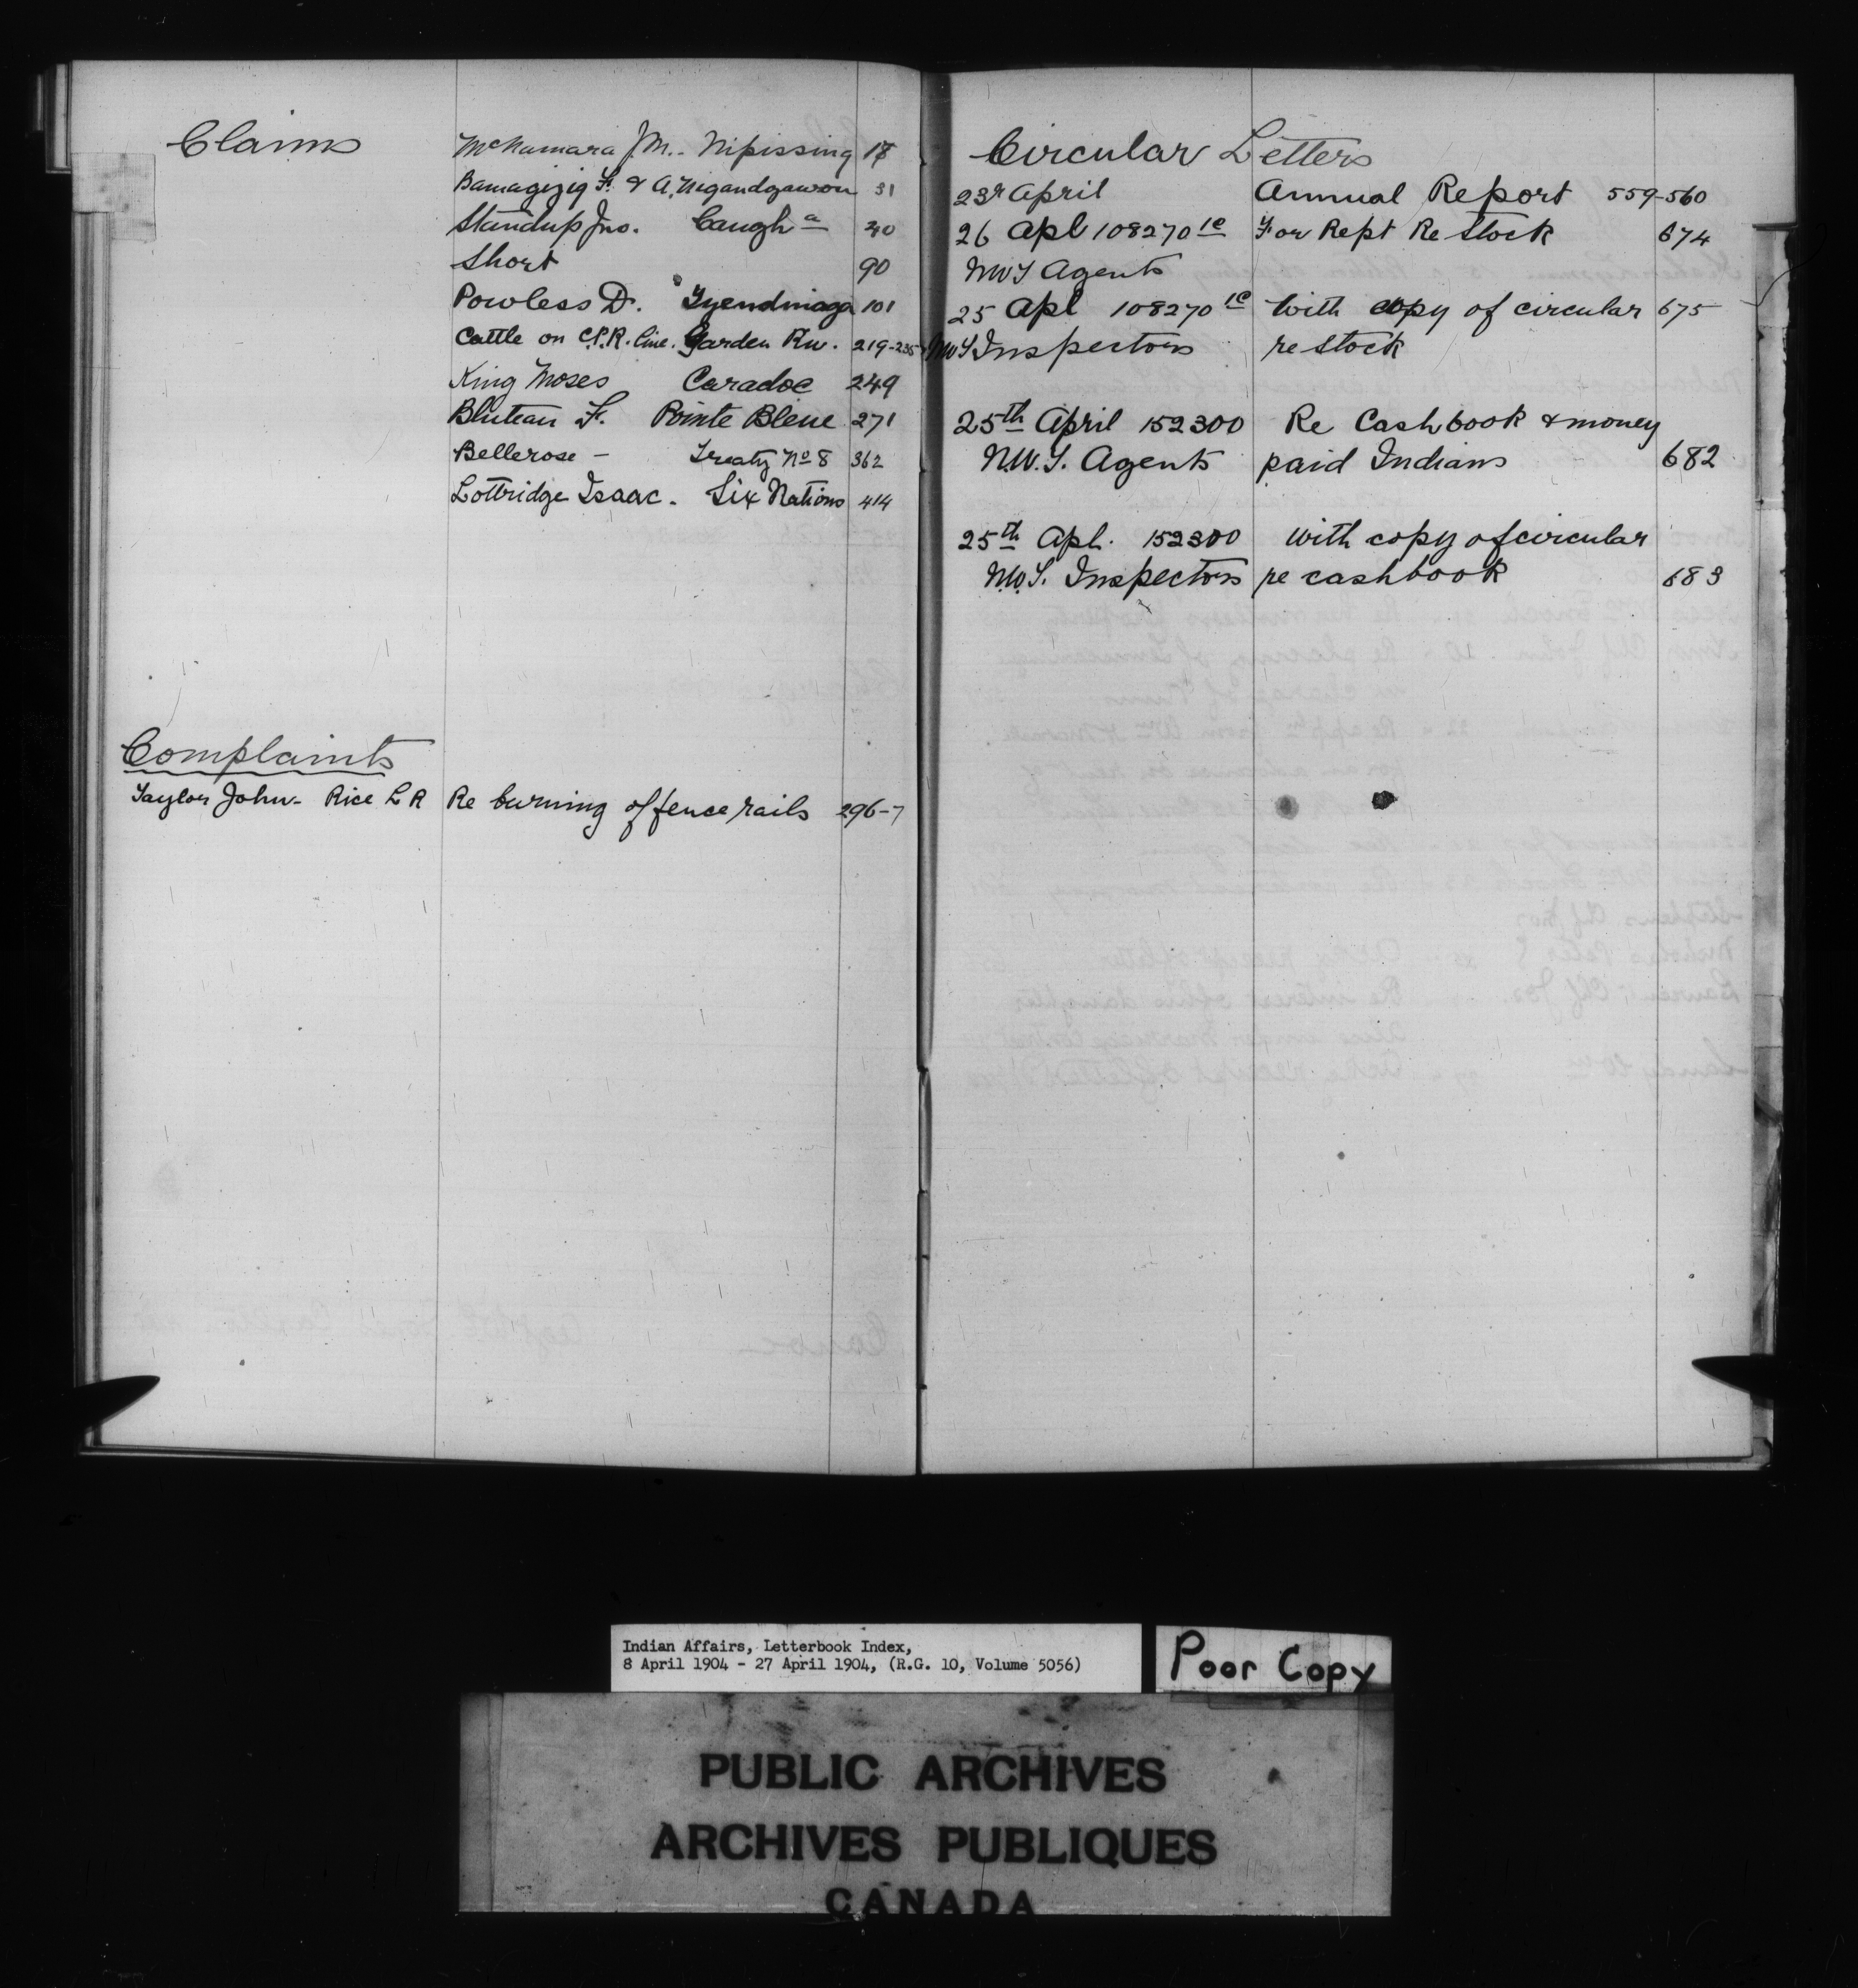 Claims
McNamara J.M. - Nipissing 17
Bamagizig F. & A. Nigandgawon 31
Standup Jno. Caugh a 40
Short 90
Powless D. Tyendinaga 101
Cattle on C.P.R. line. Garden Riv. 219-235
King Moses Caradoc 249
Bluteau F. Pointe Bleue 271
Bellerose - Treaty No 8 362
Lottridge Isaac. Six Nations 414
Complaints
Taylor John - Rice L R Re burning of fence rails 296-7
Circular Letters
23r April Annual Report 559-560
26 Apl 108270 1c For Rept Re Stock 674
NWT Agents
25 Apl 108270 1c With copy of circular 675
NWT Inspectors re stock
25th April 152300 Re Cashbook & money
N.W.T. Agents paid Indians 682
25th Apl. 152300 With copy of circular
N.W.T. Inspectors re cashbook 683
Indian Affairs, Letterbook Index,
8 April 1904 - 27 April 1904, (R.G. 10, Volume 5056)
Poor Copy
PUBLIC ARCHIVES
ARCHIVES PUBLIQUES
CANADA